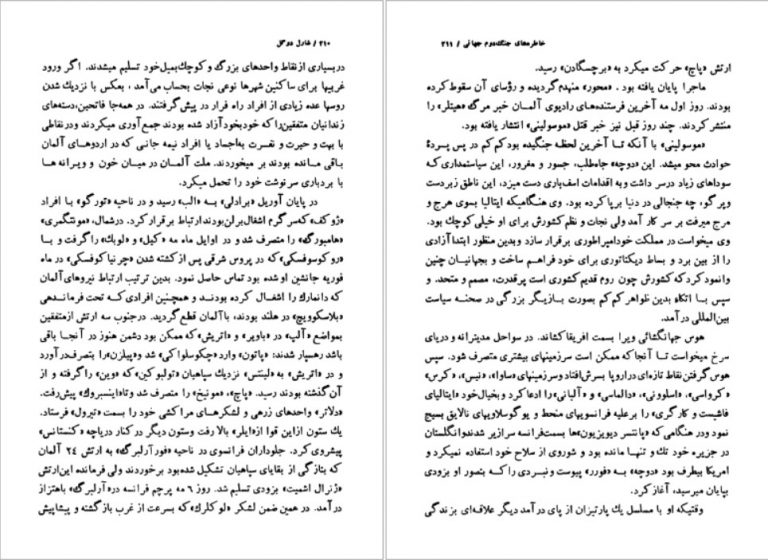 ۲۱۰ / شارل دوگل
دربسیاری از نقاط واحدهای بزرگ و کوچك بمیل خود تسلیم میشدند. اگر ورود
غربیها برای ساکنین شهرها نوعی نجات بحساب می‌آمد ، بعکس با نزدیك شدن
روسها عده زیادی از افراد راه فرار در پیش گرفتند. در همه‌جا فاتحین، دسته‌های
زندانیان متفقین را که خودبخود آزاد شده بودند جمع آوری میکردند و درنقاطی
با بهت و حیرت و نفرت به‌اجساد یا افراد نیمه جانی که در اردوهای آلمان
باقی مانده بودند بر میخوردند. ملت آلمان در میان خون و ویرانه ها
با بردباری سرنوشت خود را تحمل میکرد.
در پایان آوریل «برادلی» به «الب» رسید و در ناحیه «تورگو» با افراد
«ژوکف» که سرگرم اشغال برلن بودند ارتباط برقرار کرد. درشمال، «مونتگمری»
«هامبورگ» را متصرف شد و در اوایل ماه مه «کیل» و «لوبك» را گرفت و با
«روکوسوفسکی» که در پروس شرقی پس از کشته شدن «چرنیاکوفسکی» در ماه
فوریه جانشین او شده بود تماس حاصل نمود. بدین ترتیب ارتباط نیروهای آلمان
که دانمارك را اشغال کرده بودند و همچنین افرادی که تحت فرماندهی
«بلاسکوویچ» در هلند بودند، با آلمان قطع گردید. درجنوب سه ارتش از متفقین
بمواضع «آلپ» در «باویر» و «اتریش» که ممکن بود دشمن هنوز در آنجا باقی
باشد رهسپار شدند: «پاتون» وارد «چکوسلواکی» شد و «پیلزن» را بتصرف درآورد
و در «اتریش» به «لینتس» نزدیك سپاهیان «تولبوکین» که «وین» را گرفته و از
آن گذشته بودند رسید. «پاچ»، «مونیخ» را متصرف شد و تا «اینسبروك» پیش رفت.
«دلاتر» واحدهای زرهی و لشکرهای مراکشی خود را بسمت «تیرول» فرستاد.
یك ستون از این قوا از «ایلر» بالا رفت و ستون دیگر در کنار دریاچه «کنستانس»
پیشروی کرد. جلوداران فرانسوی در ناحیه «فورآرلبرگ» به ارتش ۲۴ آلمان
که بتازگی از بقایای سپاهیان تشکیل شده بود برخوردند ولی فرمانده این ارتش
«ژنرال اشمیت» بزودی تسلیم شد. روز ۶ مه پرچم فرانسه در «آرلبرگ» باهتزاز
در آمد. در همین ضمن لشکر «لوکلرك» که بسرعت از غرب بازگشته و پیشاپیش
خاطره‌های جنگ دوم جهانی / ۲۱۱
ارتش «پاچ» حرکت میکرد به «برچسگادن» رسید.
ماجرا پایان یافته بود. «محور» منهدم گردیده و رؤسای آن سقوط کرده
بودند. روز اول مه آخرین فرستنده‌های رادیوی آلمان خبر مرگ «هیتلر» را
منتشر کردند. چند روز قبل نیز خبر قتل «موسولینی» انتشار یافته بود.
«موسولینی» با آنکه تا آخرین لحظه جنگیده بود کم کم در پس پردۀ
حوادث محو میشد. این «دوچه» جاه‌طلب، جسور و مغرور، این سیاستمداری که
سوداهای زیاد در سر داشت و به اقدامات اسف‌باری دست میزد، این ناطق زبردست
و پرگو، چه جنجالی در دنیا برپا کرده بود. وی هنگامیکه ایتالیا بسوی هرج و
مرج میرفت بر سر کار آمد ولی نجات و نظم کشورش برای او خیلی کوچك بود.
وی میخواست در مملکت خود امپراطوری برقرار سازد و بدین منظور ابتدا آزادی
را از بین برد و بساط دیکتاتوری برای خود فراهم ساخت و بجهانیان چنین
وانمود کرد که کشورش چون روم قدیم کشوری است پرقدرت، مصمم و متحد. و
سپس با اتکاء بدین ظواهر کم کم بصورت بازیگر بزرگی در صحنه سیاست
بین‌المللی درآمد.
هوس جهانگشائی ویرا بسمت افریقا کشاند. در سواحل مدیترانه و دریای
سرخ میخواست تا آنجا که ممکن است سرزمینهای بیشتری متصرف شود. سپس
هوس گرفتن نقاط تازه‌ای در اروپا بسرش افتاد و سرزمینهای «ساوا»، «نیس»، «کرس»
«کرواسی»، «اسلوونی»، «دالماسی» و «آلبانی» را ادعا کرد و بخیال خود «ایتالیای
فاشیست و کارگری» را برعلیه فرانسویهای منحط و یوگوسلاویهای نالایق بسیج
نمود و در هنگامی که «پانتسر دیویزیون»ها بسمت فرانسه سرازیر شدند و انگلستان
در جزیره خود تك و تنها مانده بود و شوروی از سلاح خود استفاده نمیکرد و
امریکا بیطرف بود «دوچه» به «فوررر» پیوست و نبردی را که بتصور او بزودی
بپایان میرسید، آغاز کرد.
وقتیکه او با مسلسل یك پارتیزان از پای درآمد دیگر علاقه‌ای بزندگی